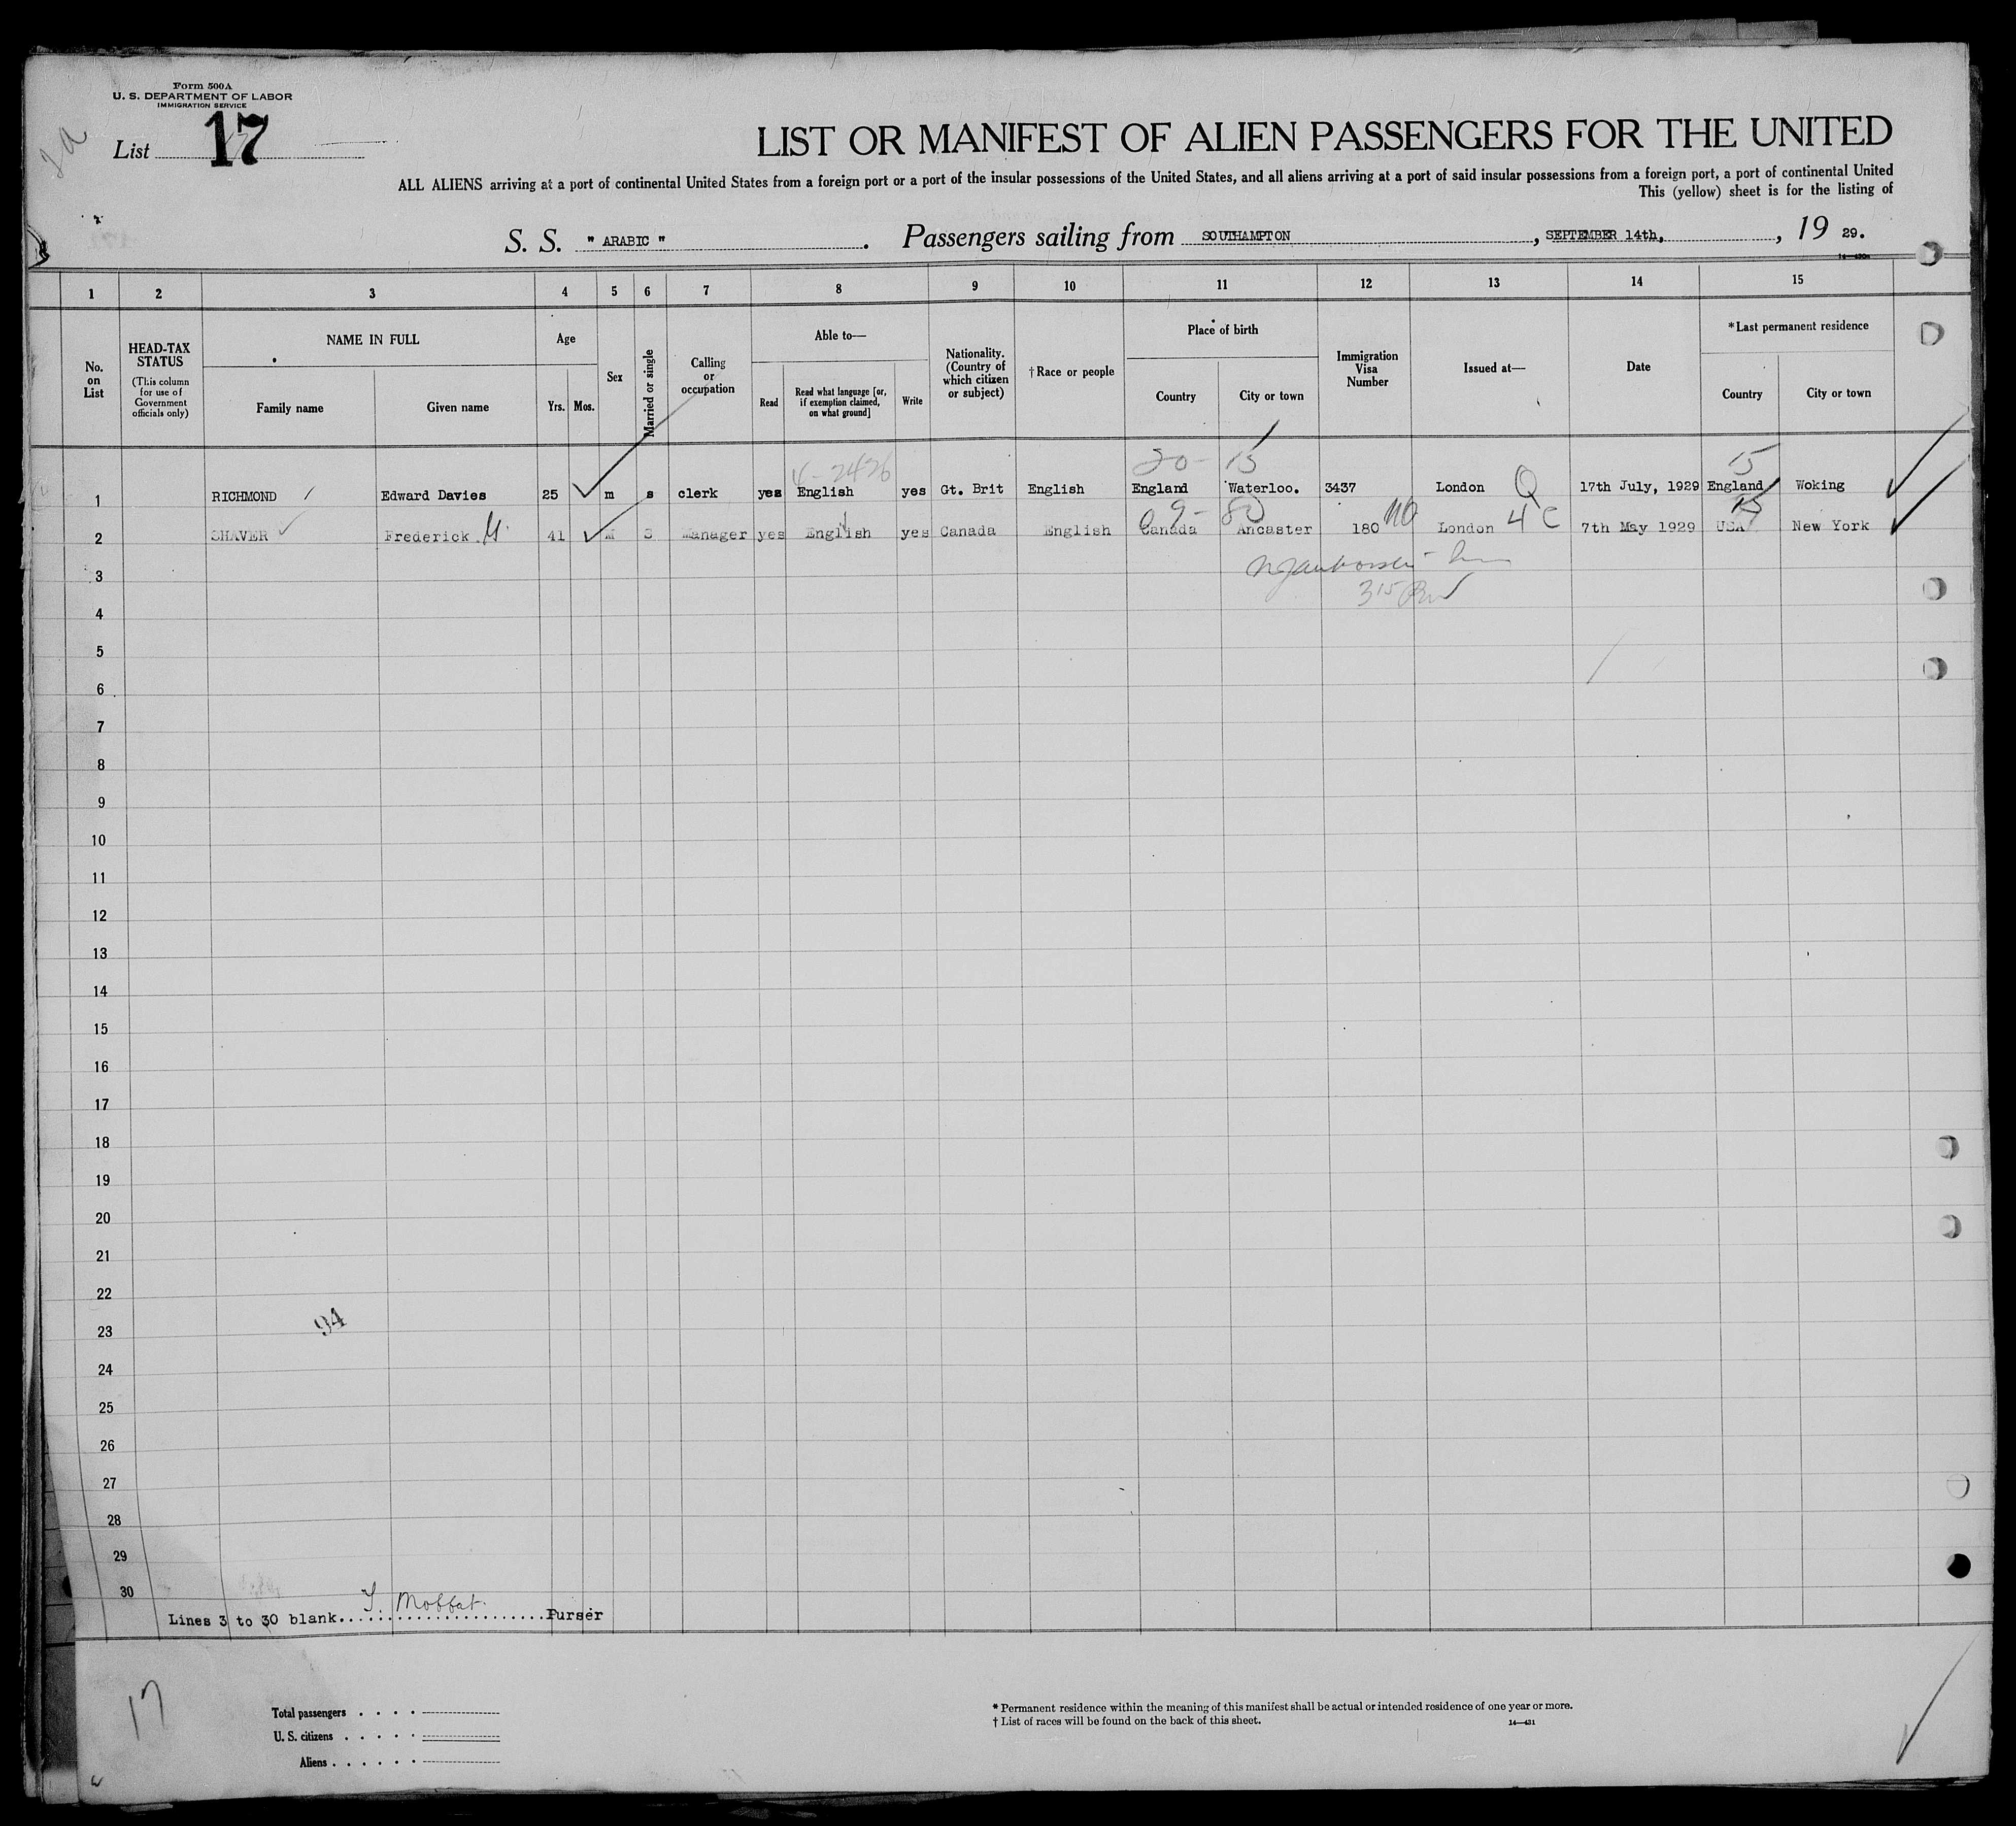 Form 500A
U. S. DEPARTMENT OF LABOR
IMMIGRATION SERVICE
List 17
LIST OR MANIFEST OF ALIEN PASSENGERS FOR THE UNITED
ALL ALIENS arriving at a port of continental United States from a foreign port or a port of the insular possessions of the United States, and all aliens arriving at a port of said insular possessions from a foreign port, a port of continental United
This (yellow) sheet is for the listing of
S. S. " ARABIC ". Passengers sailing from SOUTHAMPTON, SEPTEMBER 14th, , 19 29.
14—430a
1 2 3 4 5 6 7 8 9 10 11 12 13 14 15
No. on List
HEAD-TAX STATUS
(This column for use of Government officials only)
NAME IN FULL
Family name
Given name
Age
Yrs. Mos.
Sex
Married or single
Calling or occupation
Able to—
Read
Read what language [or, if exemption claimed, on what ground]
Write
Nationality. (Country of which citizen or subject)
† Race or people
Place of birth
Country
City or town
Immigration Visa Number
Issued at—
Date
*Last permanent residence
Country
City or town
4-2426 20- 15 15
1 RICHMOND Edward Davies 25 m s clerk yes English yes Gt. Brit English England Waterloo. 3437 London Q 17th July, 1929 England Woking
09- 80 15
2 SHAVER Frederick M. 41 M S Manager yes English yes Canada English Canada Ancaster 180 London 4 C 7th May 1929 USA New York
3
315
4
5
6
7
8
9
10
11
12
13
14
15
16
17
18
19
20
21
22
23
94
24
25
26
27
28
29
30
Lines 3 to 30 blank. Moffat. Purser
17
Total passengers
U. S. citizens
Aliens
* Permanent residence within the meaning of this manifest shall be actual or intended residence of one year or more.
† List of races will be found on the back of this sheet.
14—431